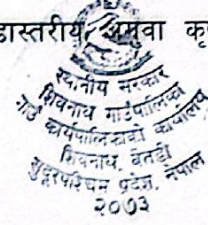 डास्तरीय अगुवा कृ
स्थानीय सरकार
शिवनाथ गाउँपालिका
गाउँ कार्यपालिकाको कार्यालय
शिवनाथ, बैतडी
सुदूरपश्चिम प्रदेश, नेपाल
२०७३